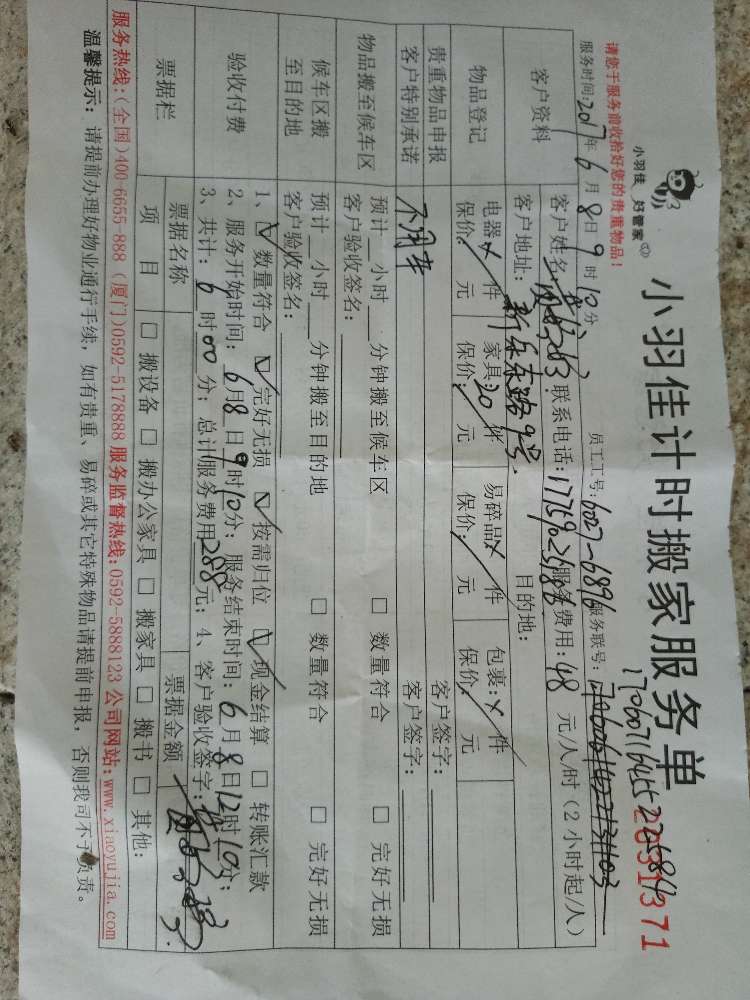 小羽佳 好管家
小羽佳计时搬家服务单
2831371
请您于服务前收拾好您的贵重物品！
服务时间:2017年6月8日9时10分 员工工号:6027-6896 服务联号:
客户资料
客户姓名: 联系电话: 服务费用:48元/人/时(2小时起/人)
客户地址:新乐东路9号 目的地:
物品登记
电器:X件 家具:20件 易碎品:X件 包裹:X件
保价:/元 保价:/元 保价:/元 保价:/元
贵重物品申报 客户签字:
客户特别承诺 不用车 客户签字:
物品搬至候车区
预计__小时__分钟搬至候车区 □ 数量符合 □ 完好无损
客户验收签名:
候车区搬至目的地
预计__小时__分钟搬至目的地 □ 数量符合 □ 完好无损
客户验收签名:
验收付费
1、☑ 数量符合 ☑ 完好无损 ☑ 按需归位 ☑ 现金结算 □ 转账汇款
2、服务开始时间:6月8日9时10分；服务结束时间:6月8日12时10分；
3、共计:6时00分；总计服务费用288元；4、客户验收签字:
票据栏
票据名称 票据金额
项目 □ 搬设备 □ 搬办公家具 □ 搬家具 □ 搬书 □ 其他:
服务热线:(全国)400 6655 888 (厦门)0592-5178888 服务监督热线:0592-5888123 公司网站:www.xiaoyujia.com
温馨提示: 请提前办理好物业通行手续，如有贵重、易碎或其它特殊物品请提前申报，否则我司不予负责。